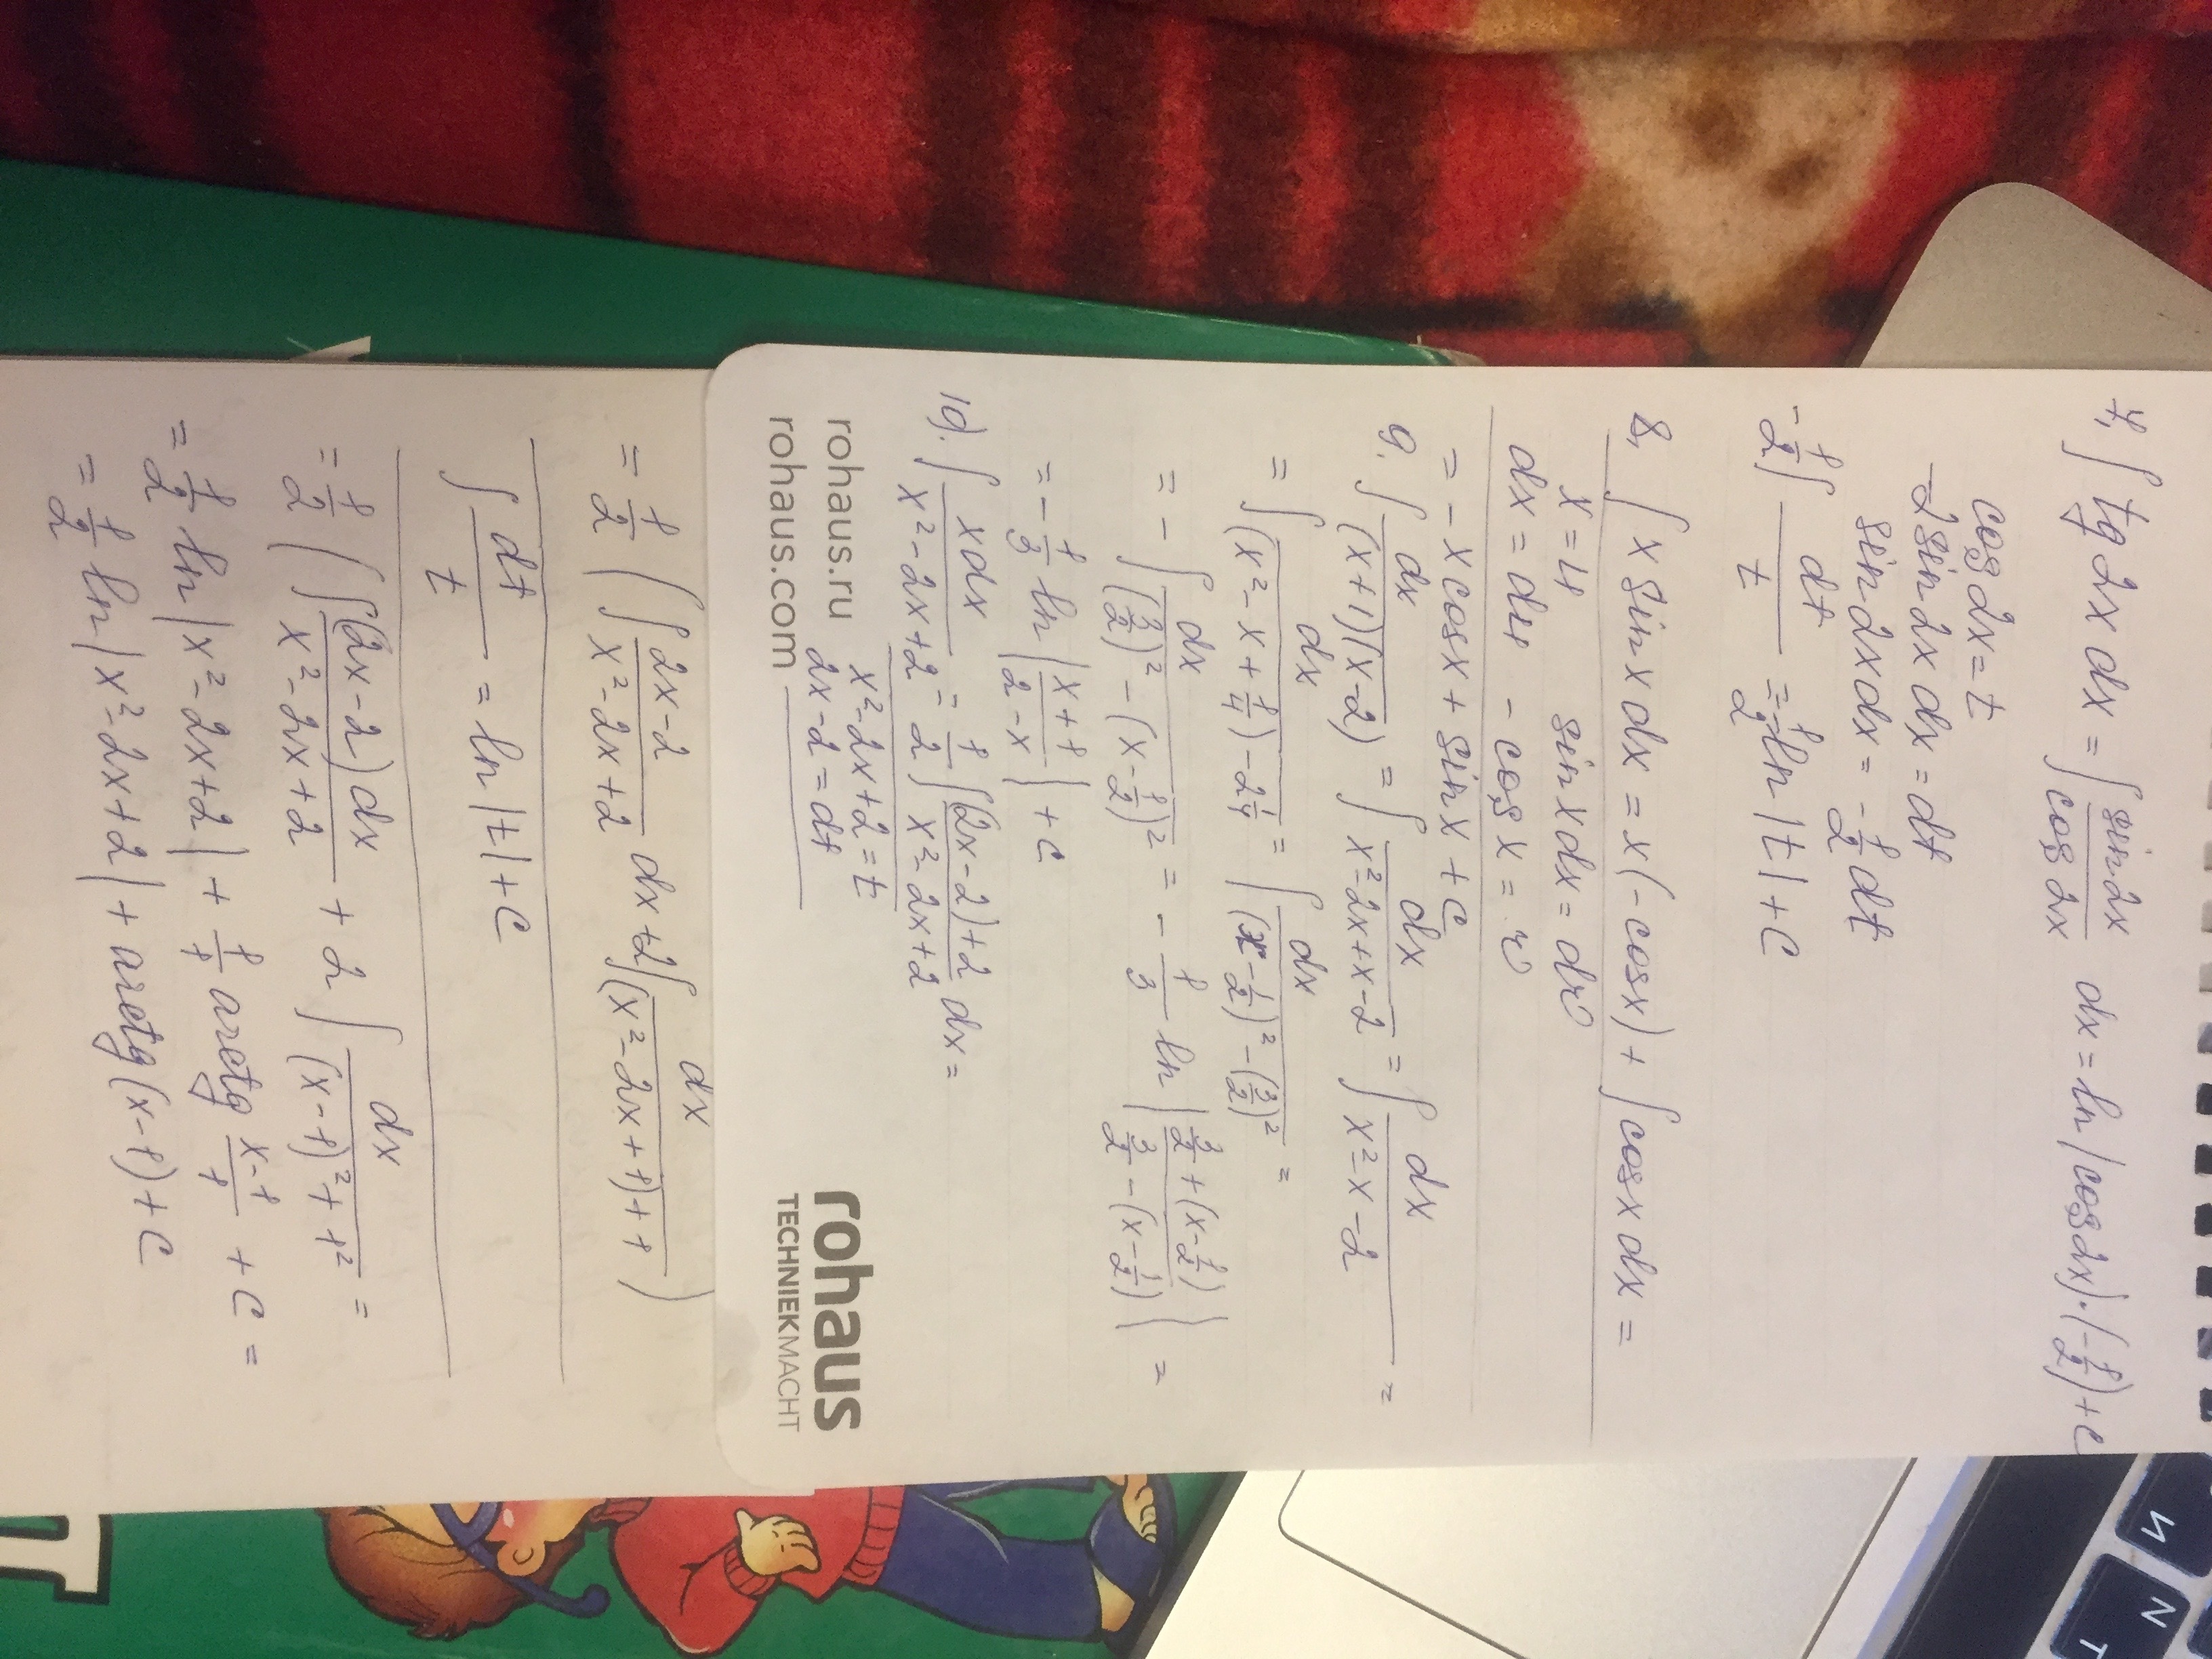 7. ∫ tg 2x dx = ∫ sin 2x / cos 2x dx = ln |cos 2x| · (-1/2) + c
cos 2x = t
-2 sin 2x dx = dt
sin 2x dx = -1/2 dt
-1/2 ∫ dt / t = -1/2 ln |t| + c
8. ∫ x sin x dx = x (-cos x) + ∫ cos x dx =
x = u sin x dx = dv
dx = du - cos x = v
= - x cos x + sin x + c
9. ∫ dx / (x+1)(x-2) = ∫ dx / x²-2x+x-2 = ∫ dx / x²-x-2 =
= ∫ dx / (x²-x+1/4)-2 1/4 = ∫ dx / (x-1/2)²-(3/2)² =
= - ∫ dx / (3/2)²-(x-1/2)² = - 1/3 ln | 3/2+(x-1/2) / 3/2-(x-1/2) | =
= - 1/3 ln | x+1 / 2-x | + c
10. ∫ x dx / x²-2x+2 = 1/2 ∫ (2x-2)+2 / x²-2x+2 dx =
x²-2x+2 = t
2x-2 = dt
rohaus.ru
rohaus.com
rohaus
TECHNIEKMACHT
= 1/2 ( ∫ 2x-2 / x²-2x+2 dx + 2 ∫ dx / (x²-2x+1)+1 )
∫ dt / t = ln |t| + c
= 1/2 ( ∫ (2x-2) dx / x²-2x+2 + 2 ∫ dx / (x-1)²+1² =
= 1/2 ln |x²-2x+2| + 1/1 arctg x-1 / 1 + c =
= 1/2 ln |x²-2x+2| + arctg (x-1) + c
И
N
Т